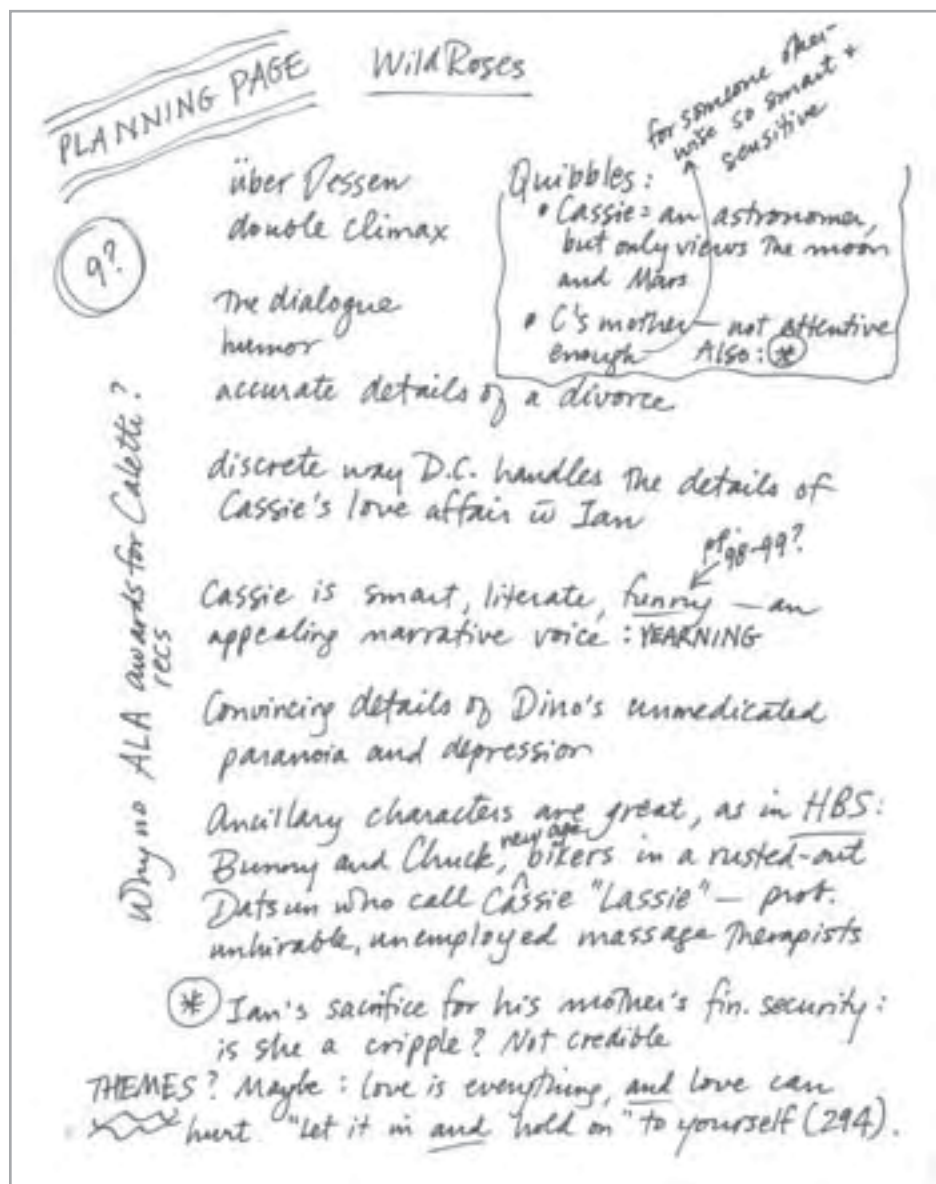 PLANNING PAGE
Wild Roses
for someone other-
wise so smart +
sensitive
über Dessen
double climax
9?
The dialogue
humor
accurate details of a divorce
Quibbles:
• Cassie = an astronomer,
but only views the moon
and Mars
• C's mother — not attentive
enough
Also: *
discrete way D.C. handles the details of
Cassie's love affair w Ian
98-99?
Cassie is smart, literate, funny — an
appealing narrative voice: YEARNING
Convincing details of Dino's unmedicated
paranoia and depression
Ancillary characters are great, as in HBS:
Bunny and Chuck, new age bikers in a rusted-out
Datsun who call Cassie "Lassie" — prob.
unhirable, unemployed massage therapists
Why no ALA awards for Caletti?
recs
* Ian's sacrifice for his mother's fin. security:
is she a cripple? Not credible
THEMES? Maybe: love is everything, and love can
hurt "let it in and hold on" to yourself (294).